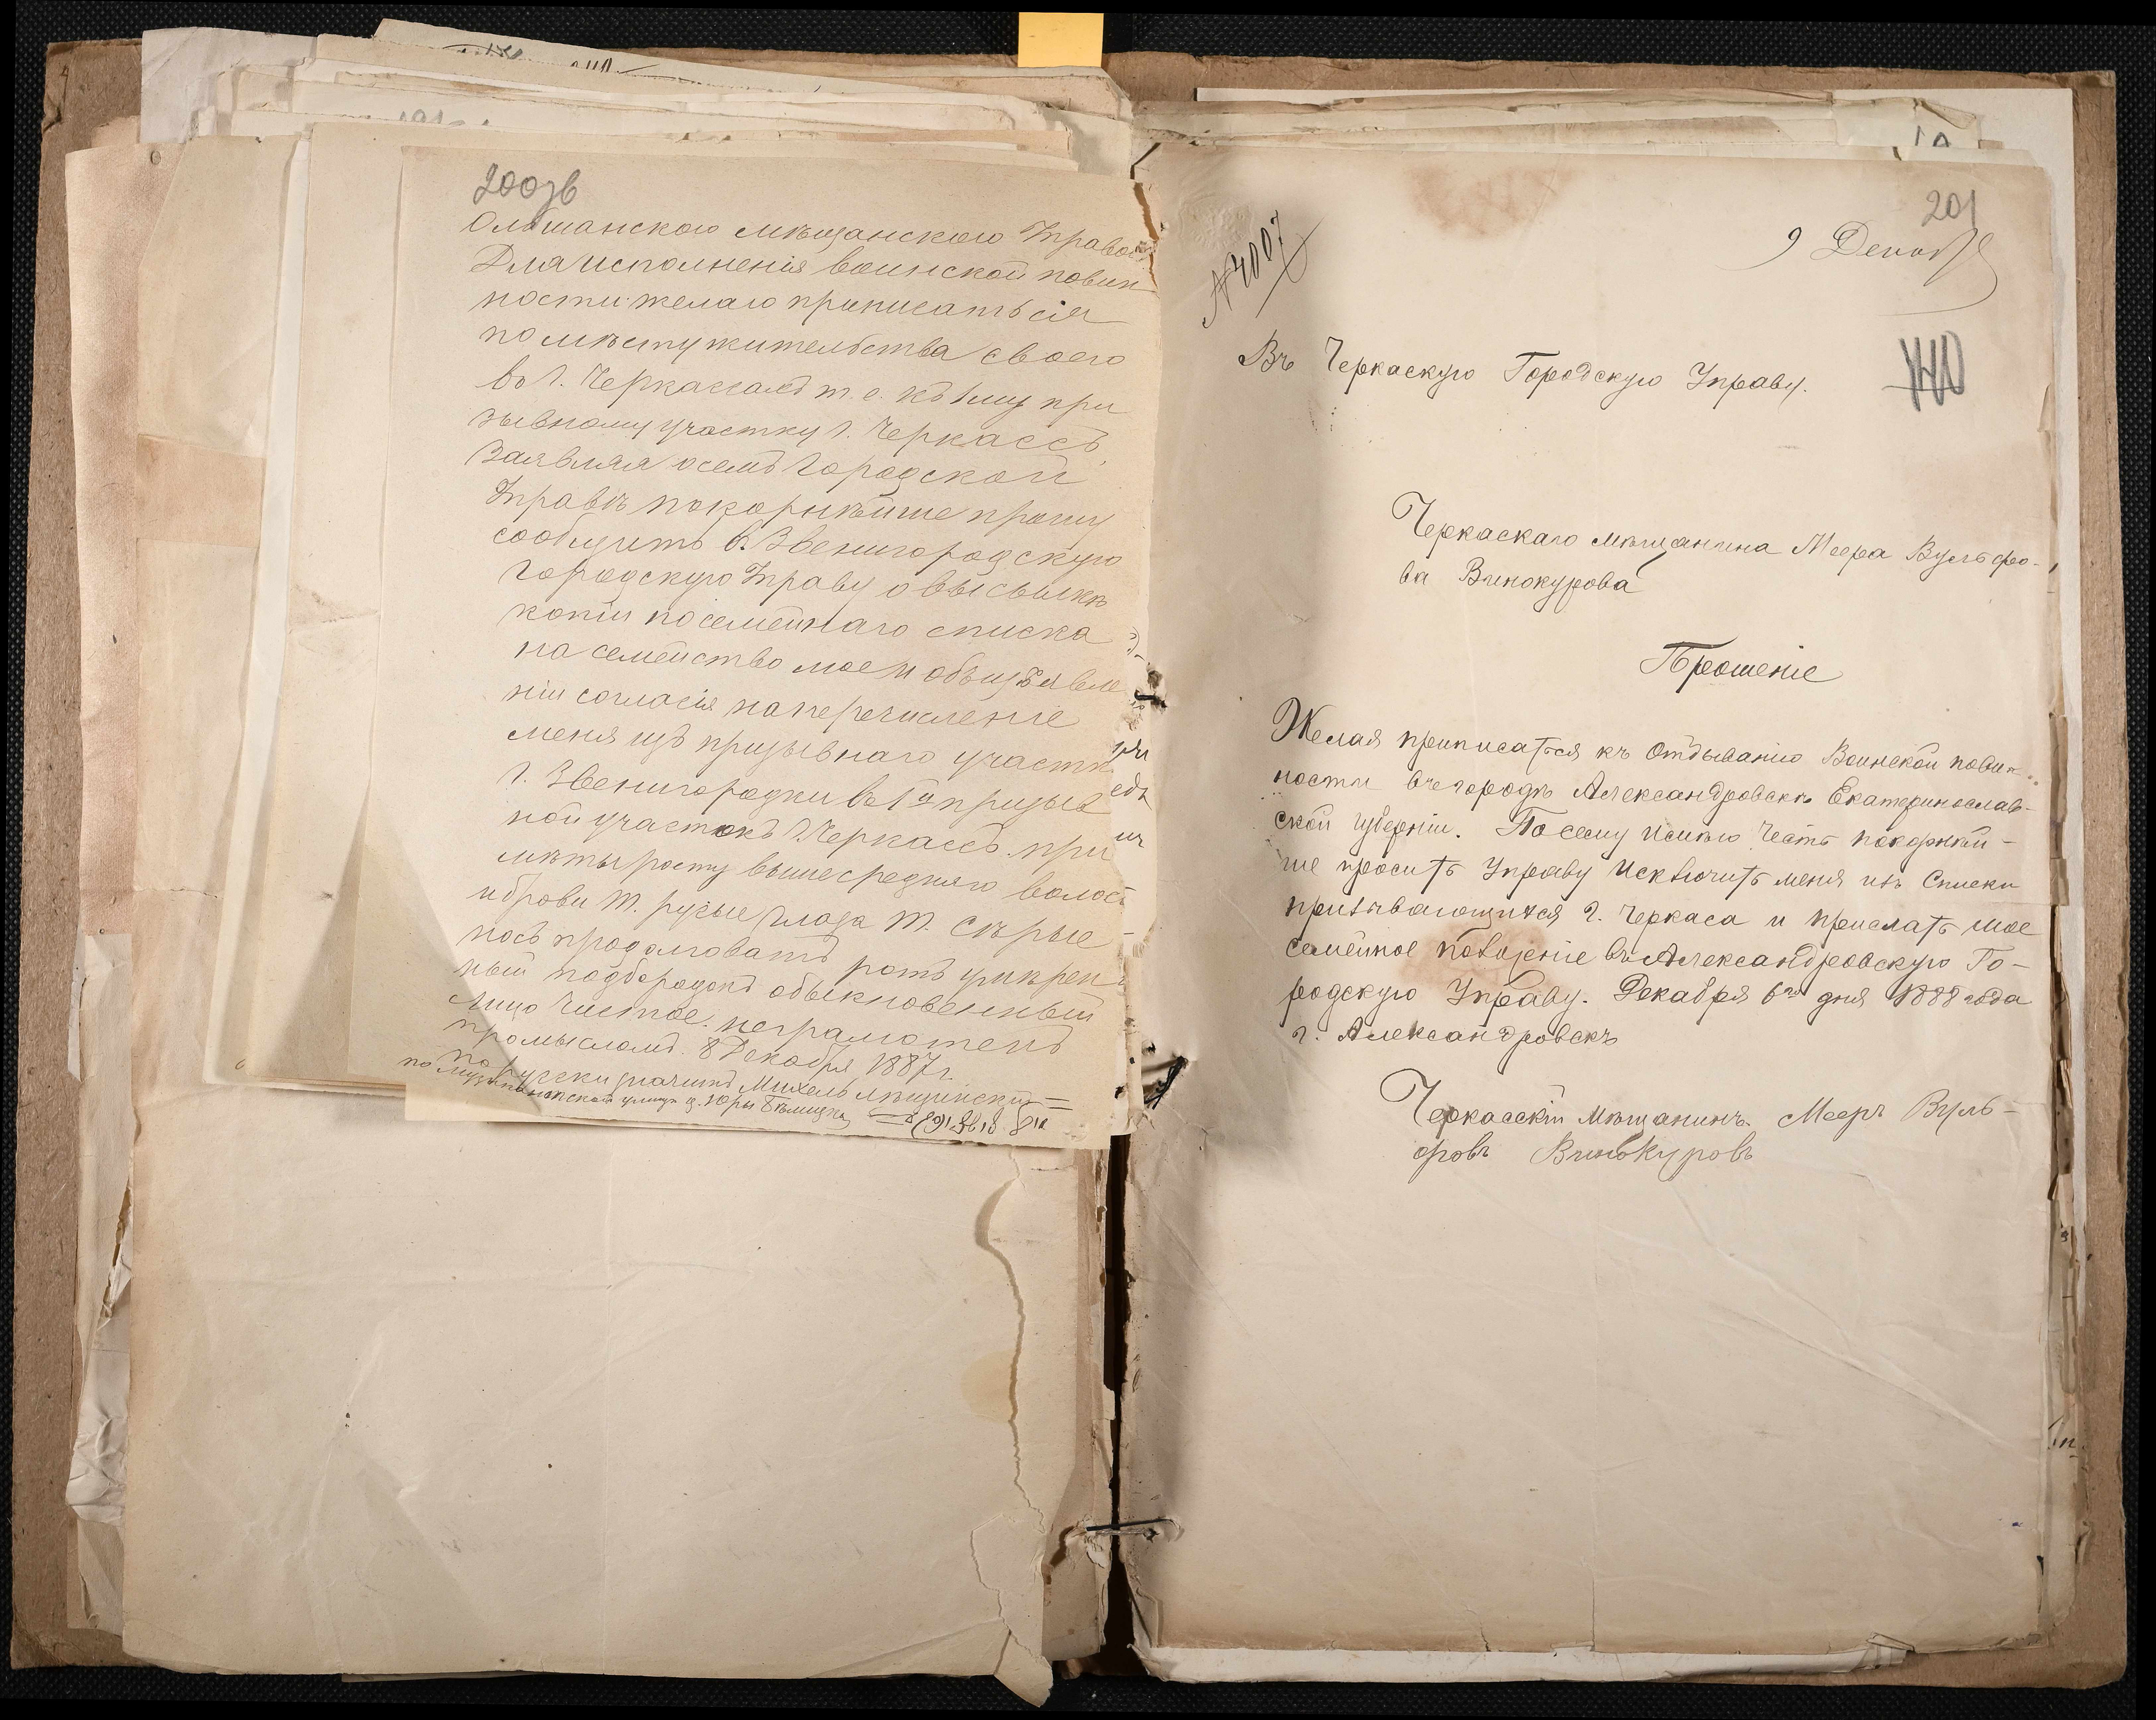 200зв
Ольшанского мѣщанского Управо
Для исполненія воинской повин
ности желаю приписаться
по мѣсту жительства своего
во г. Черкассахъ т. е. къ 1му при
зывному участку г. Черкассъ,
Заявляя о семъ Городской
Управѣ покорнѣйше прошу
сообщить в. Звенигородскую
Городскую Управу о высылкѣ
копіи посемейнаго списка
на семейство мое и объ изъявле
ніи согласія на перечисленіе
меня изъ призывнаго участк
г. Звенигородки въ 1й призыв
ной участокъ г. Черкассъ. при
мѣты росту выше средняго волос
и брови т. русые глаза т. Сѣрые
носъ продолговатъ ротъ умѣрен
ный подбородокъ обыкновенный
лицо чистое. неграмотенъ
промысломъ. 8 Декабря 1887 г.
по русски значитъ Михель
201
9 Декаб
№ 4007
Въ Черкаскую Городскую Управу.
140
Черкаскаго мѣщанина Меера Вульфо-
ва Винокурова
Прошеніе
Желая приписатся къ Отбыванію Воинской повин
ности въ городѣ Александровскѣ Екатеринослав-
ской губерніи. По сему имѣю честь покорнѣй-
ше просить Управу Исключить меня изъ Списки
призывающихся г. Черкаса и прислать мое
семейное положеніе въ Александровскую Го-
родскую Управу. Декабря 6го дня 1888 года
г. Александровскъ
Черкасскій Мѣщанинъ. Мееръ Вуль-
фовъ Винокуровъ